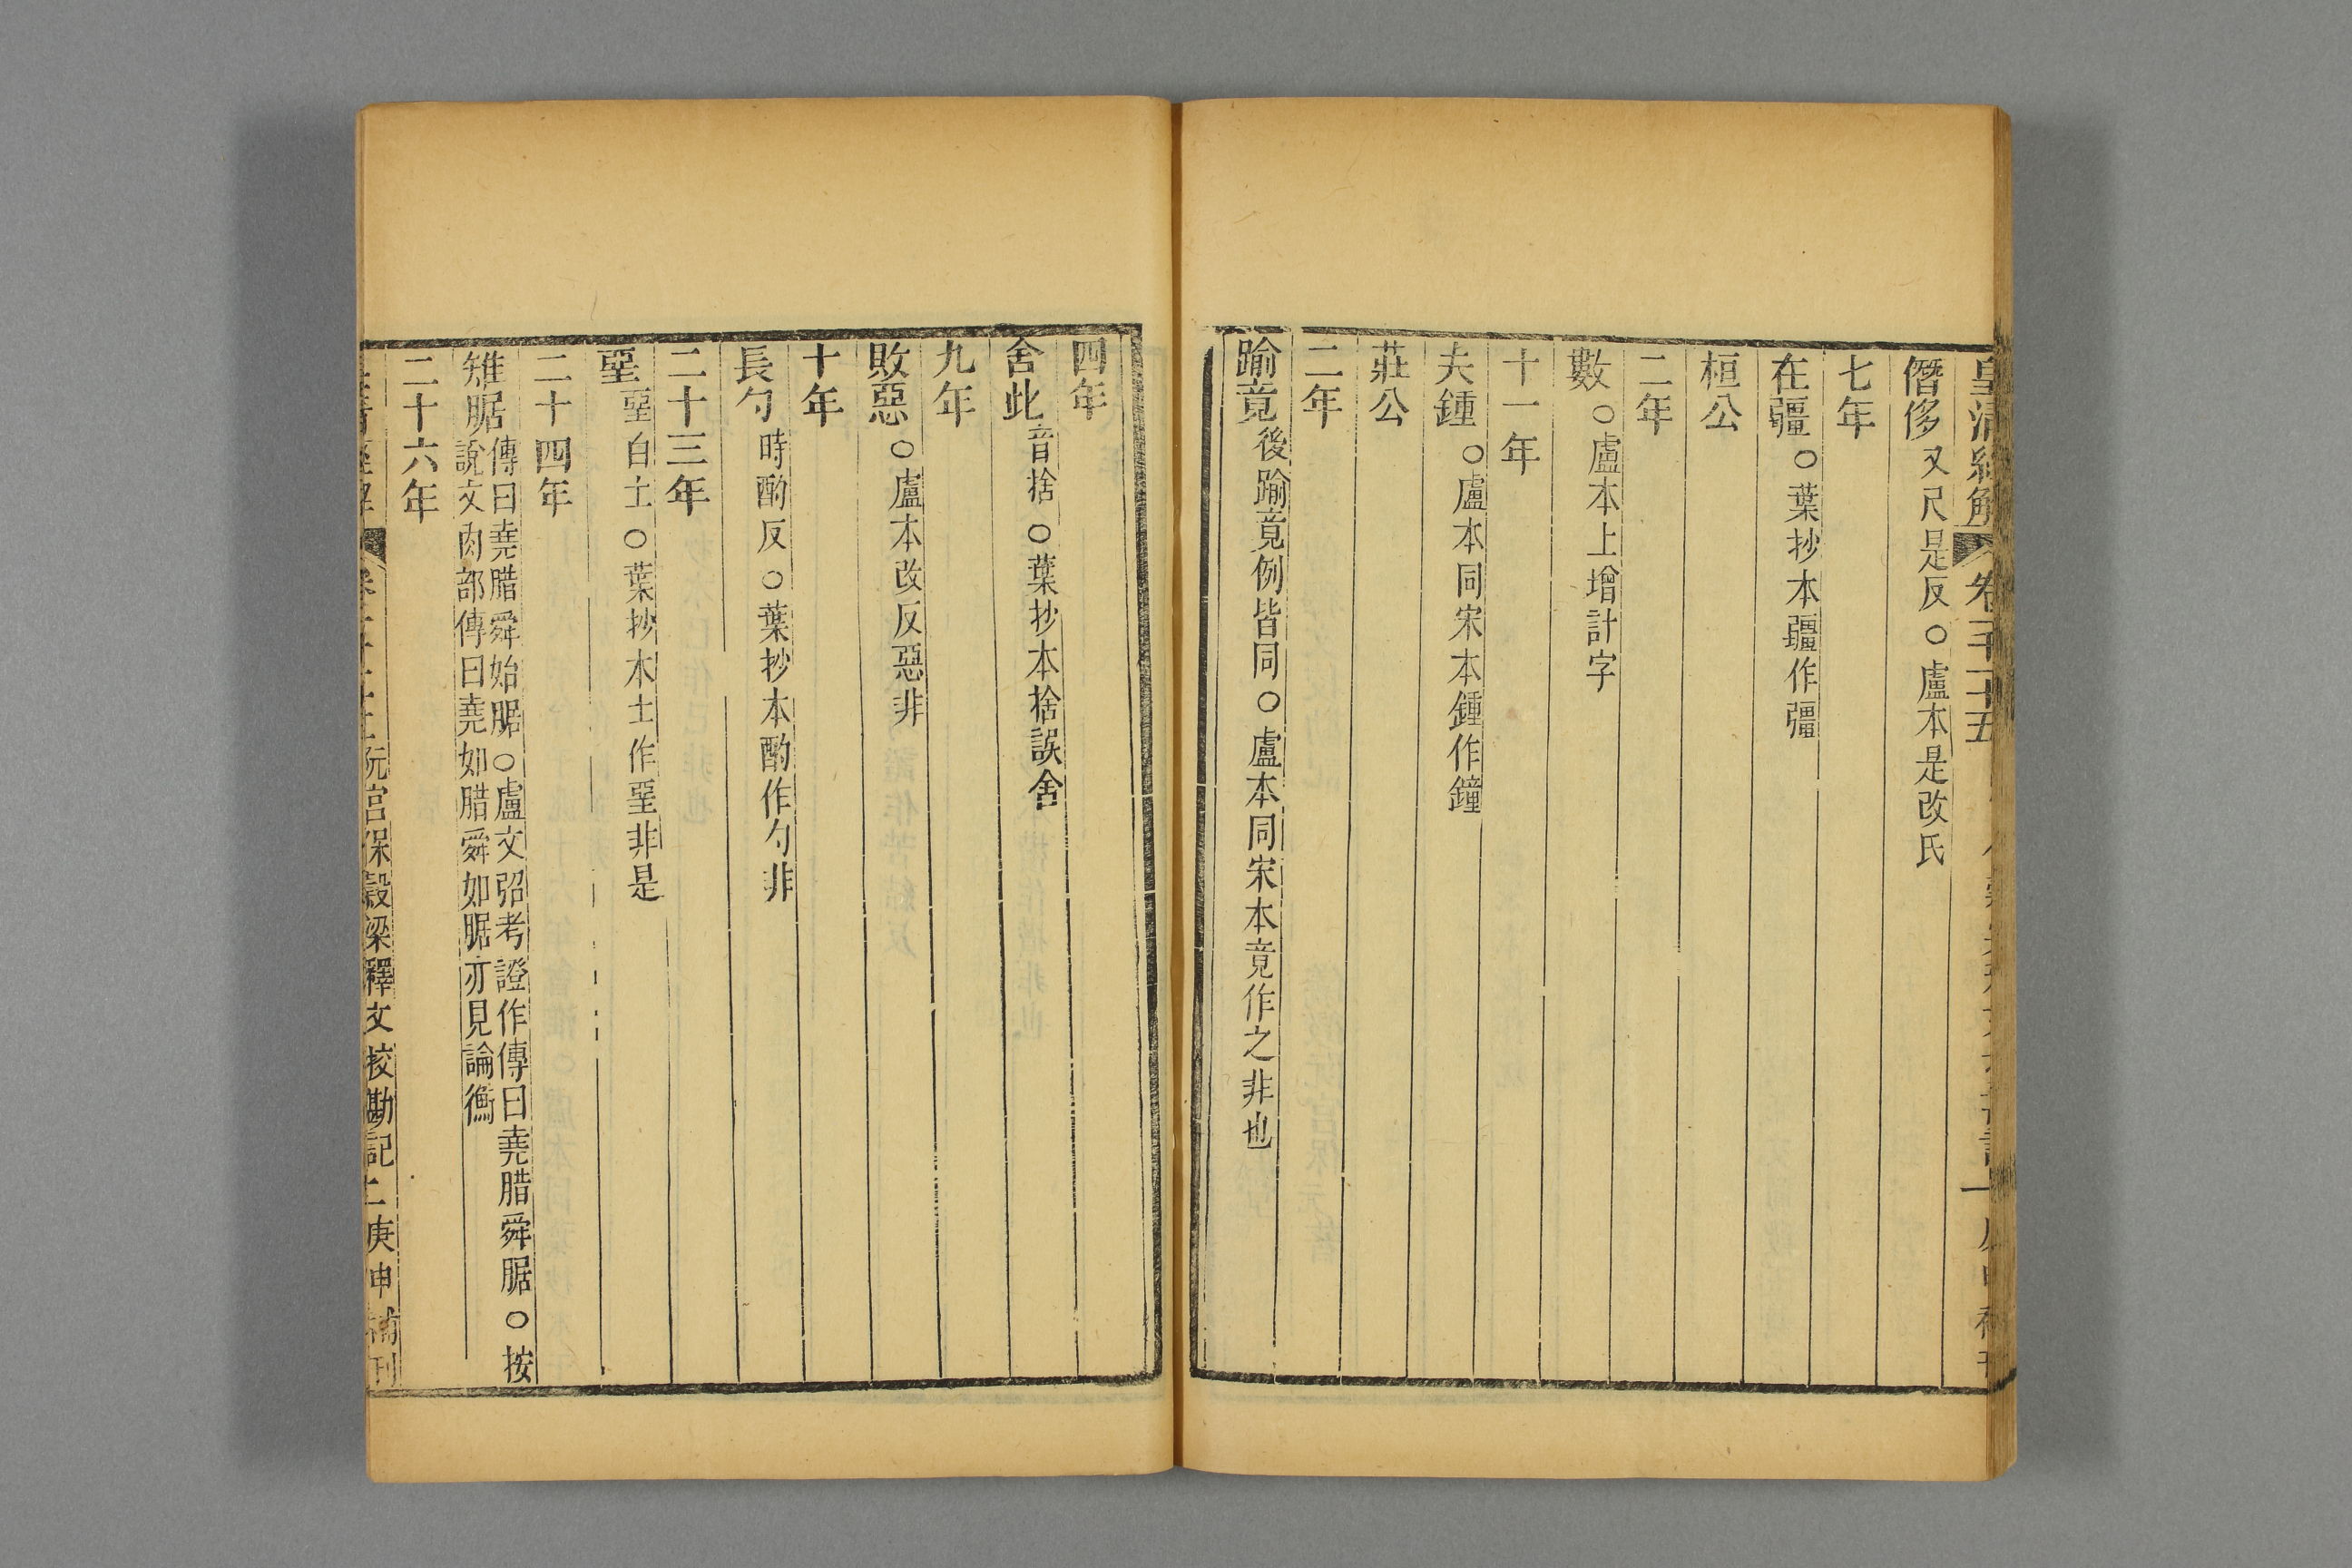 皇清經解 卷千二十五
僭侈又尺是反○盧本是改氏
七年
在疆○葉抄本疆作彊
桓公
二年
數○盧本上增計字
十一年
夫鍾○盧本同宋本鍾作鐘
莊公
二年
踰竟後踰竟例皆同○盧本同宋本竟作之非也
四年
舍此音捨○葉抄本捨誤舍
九年
敗惡○盧本改反惡非
十年
長勺時酌反○葉抄本酌作勺非
二十三年
堊堊白土○葉抄本土作堊非是
二十四年
雉腒傳曰堯腊舜始腒○盧文弨考證作傳曰堯腊舜腒○按
說文肉部傳曰堯如腊舜如腒亦見論衡
二十六年
阮宮保穀梁釋文挍勘記 二 庚申補刊